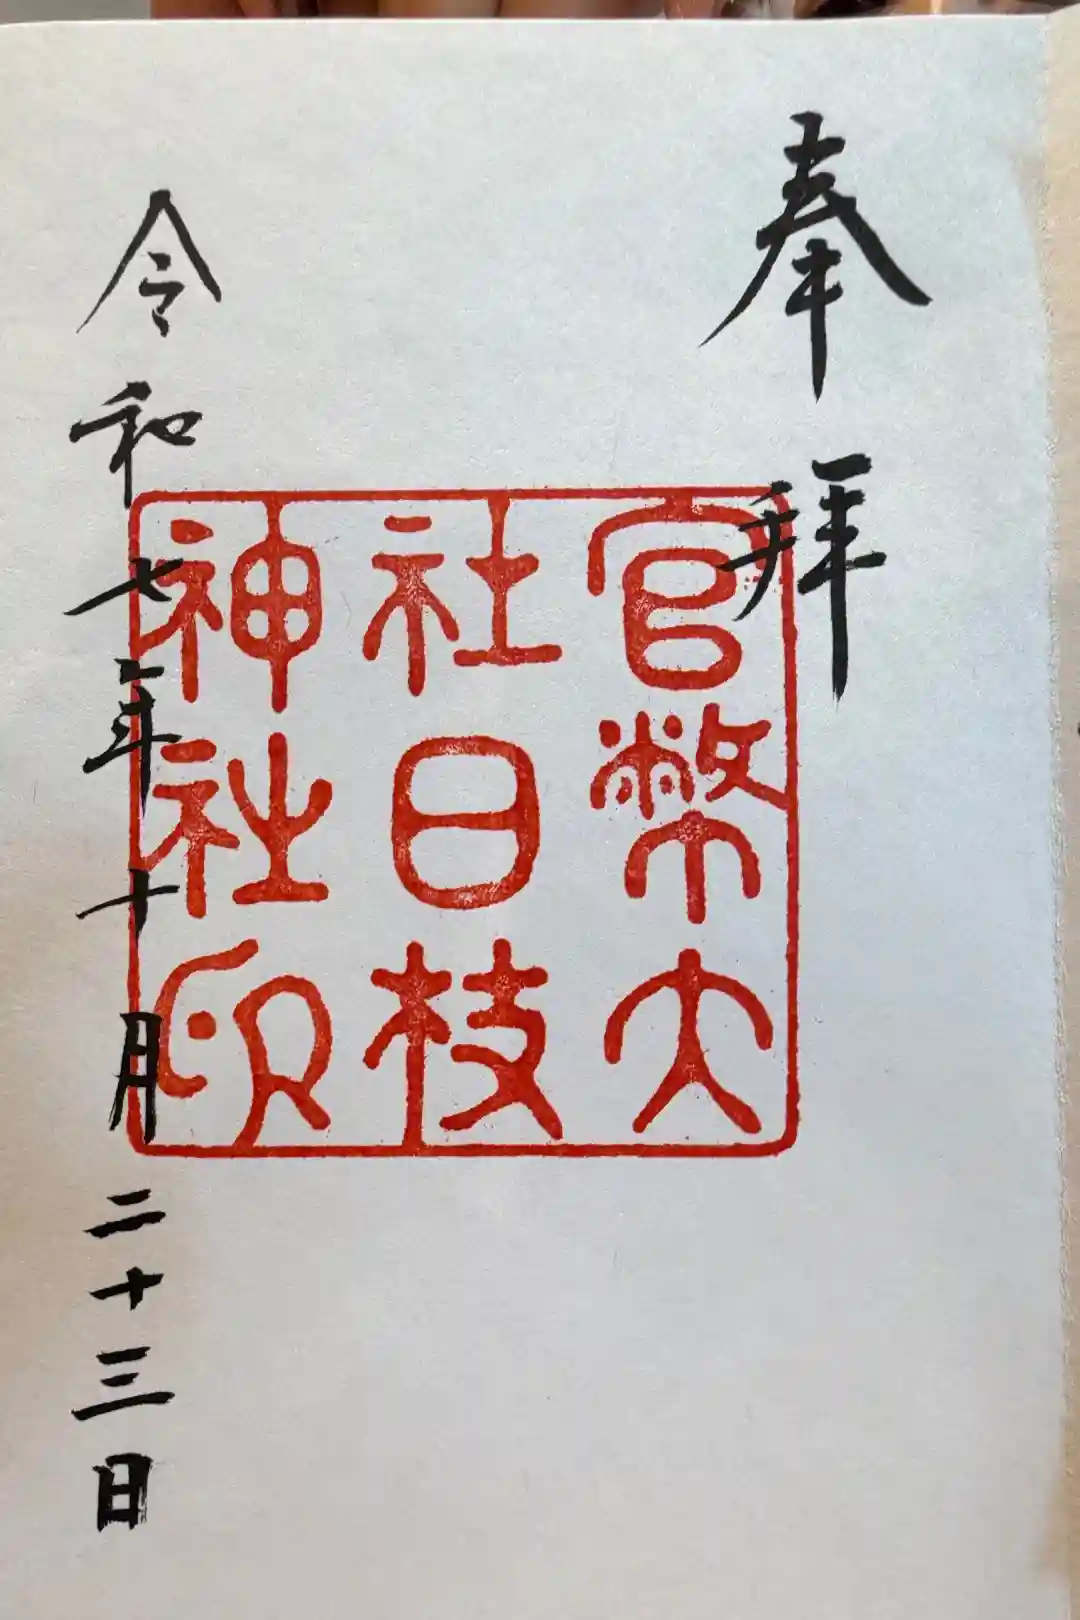 奉拝
官幣大
社日枝
神社印
令和七年十月二十三日